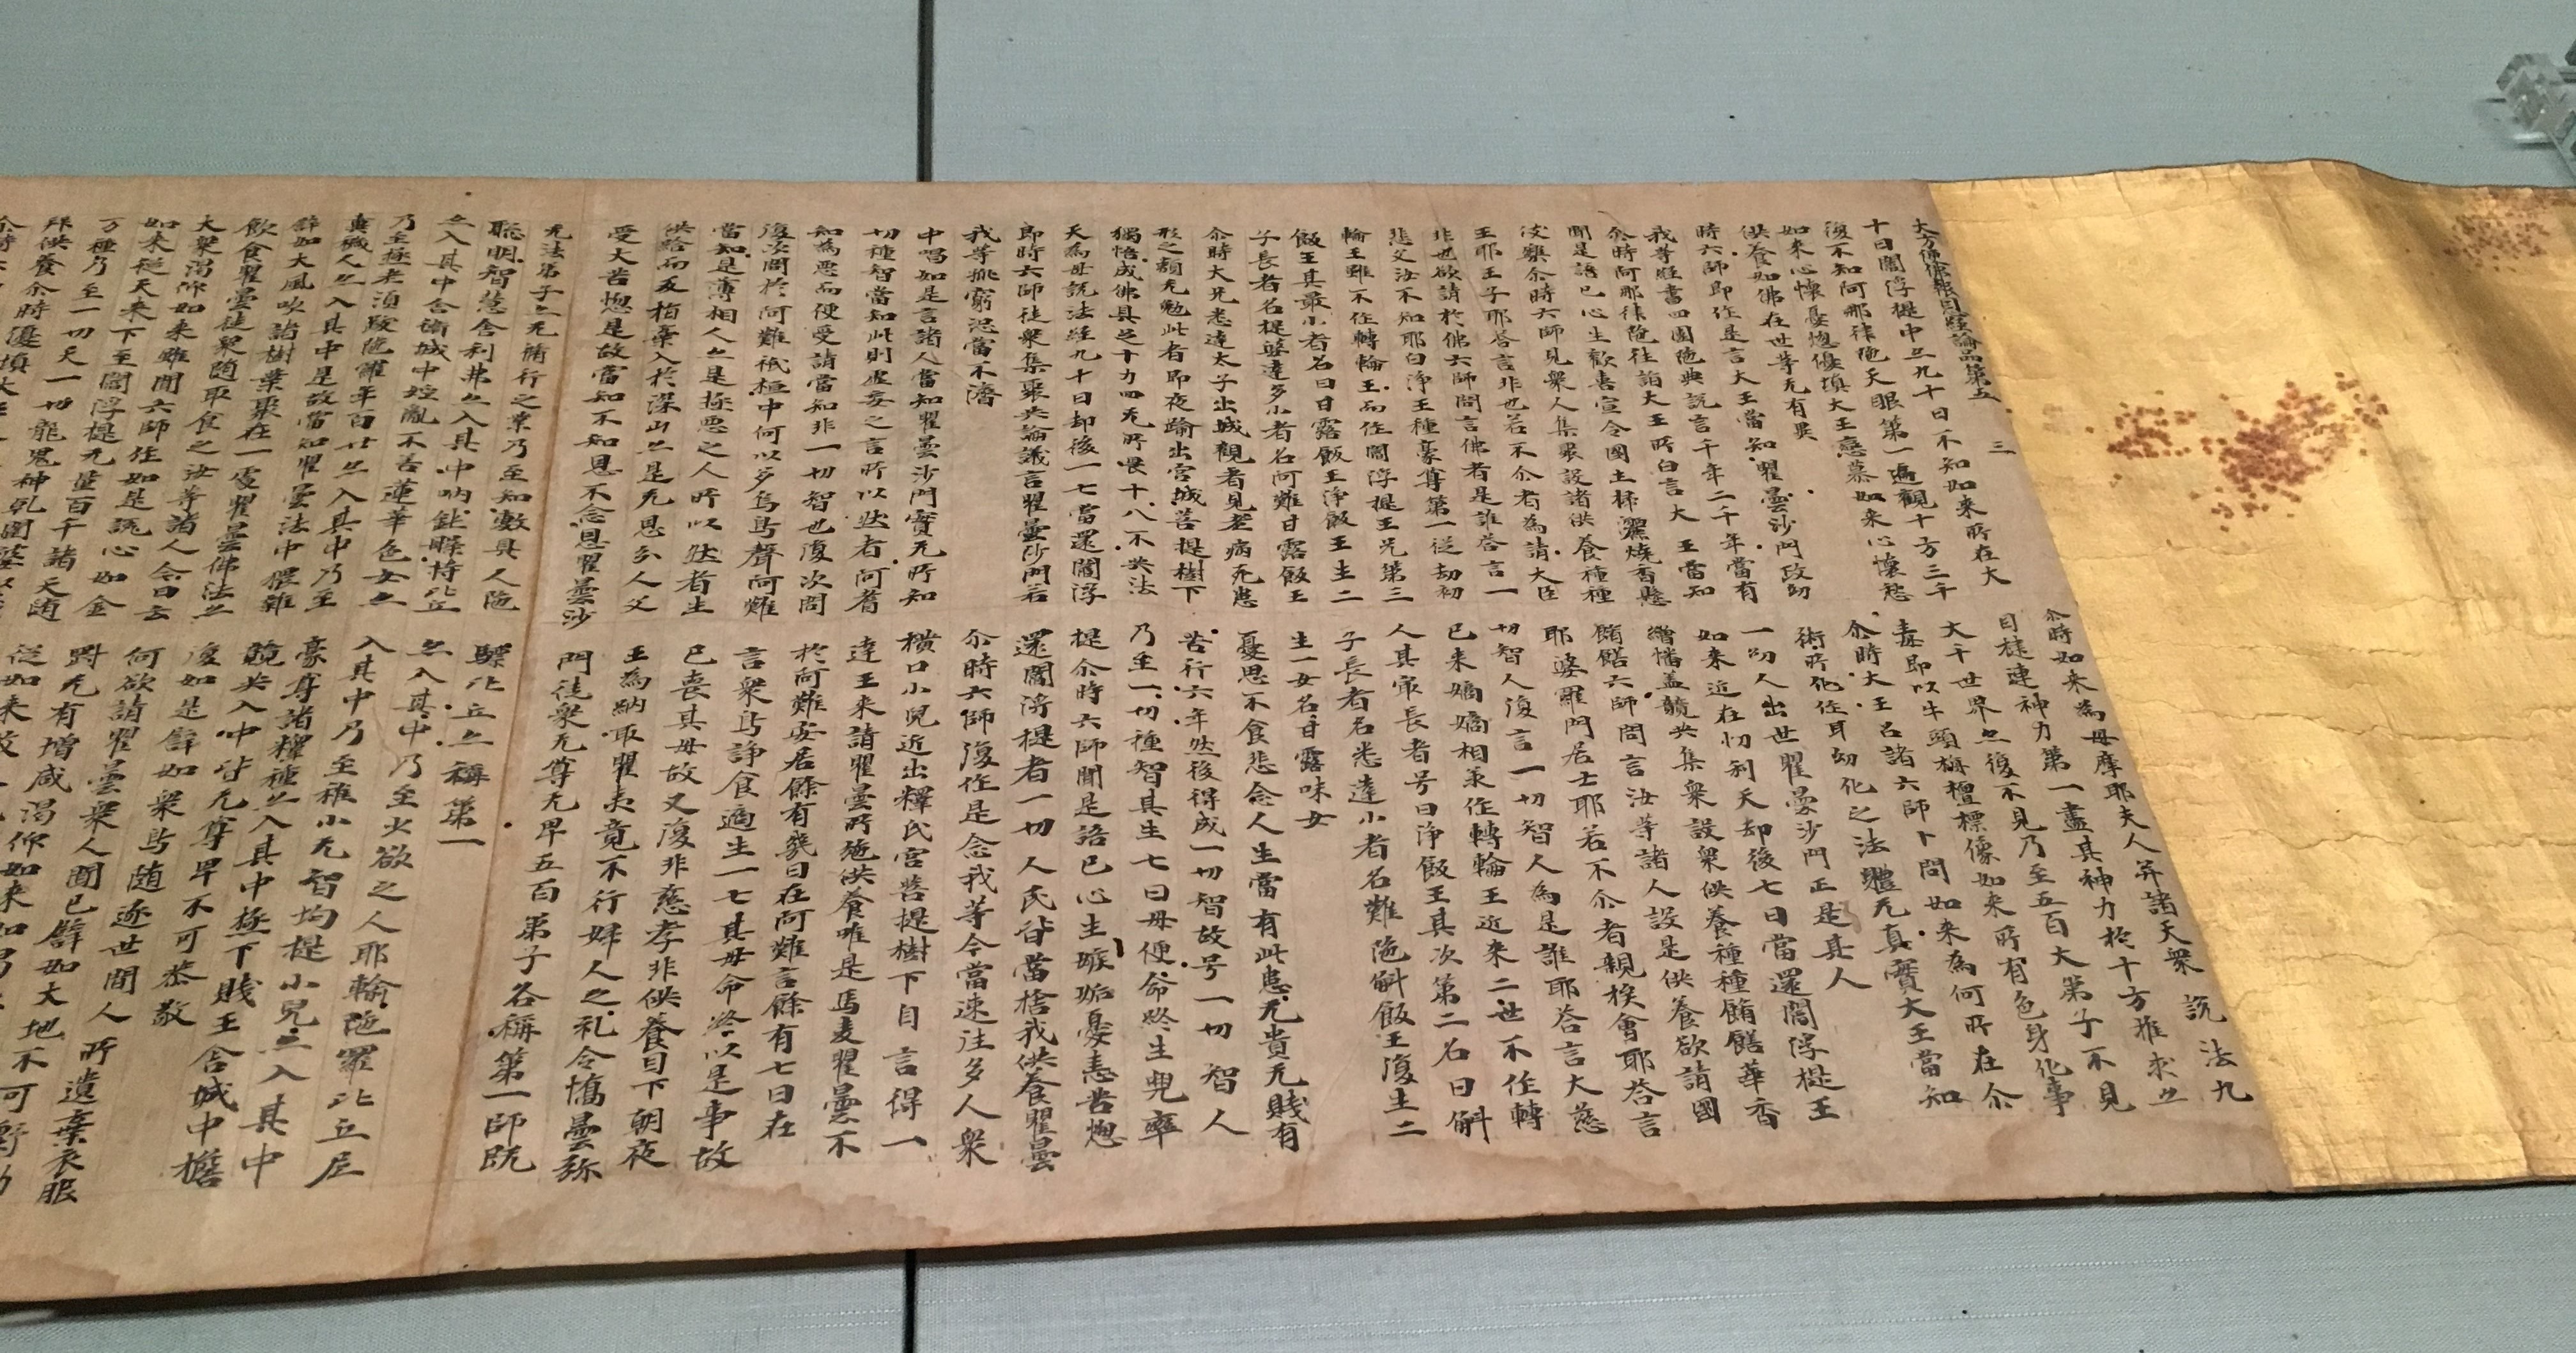 大方便佛報恩經論議品第五 三
尒時如来為母摩耶夫人并諸天衆說法九
十日閻浮提中亦九十日不知如来所在大
目揵連神力第一盡其神力於十方推求亦
復不知阿那律陁天眼第一遍觀十方三千
大千世界亦復不見乃至五百大第子不見
如来心懷憂惱優填大王戀慕如来心懷愁
毒即以牛頭栴檀摽像如来所有色身化事
供養如佛在世等无有異
尒時大王召諸六師卜問如来為何所在尒
時六師即作是言大王當知瞿曇沙門政幻
術所化作耳幻化之法體无真實大王當知
我等經書四圍陁典說言千年二千年當有
一幻人出世瞿曇沙門正是其人
尒時阿那律陁往詣大王所白言大王當知
如来近在忉利天却後七日當還閻浮提王
聞是語已心生歡喜宣令國土掃灑燒香懸
繒幡蓋競共集衆設衆供養種種餚饍華香
伎樂尒時六師見衆人集聚設諸供養種種
餚饍六師問言汝等諸人設是供養欲請國
王耶王子耶答言非也若不尒者為請大臣
耶婆羅門居士耶若不尒者親族會耶答言
非也欲請於佛六師問言佛者是誰答言一
切智人復言一切智人為是誰耶答言大慈
悲父汝不知耶白淨王種豪尊第一從劫初
已来嫡嫡相承作轉輪王近来二世不作轉
輪王雖不作轉輪王而作閻浮提王兄第三
人其㝡長者号曰淨飯王其次第二名曰斛
飯王其最小者名曰甘露飯王淨飯王生二
子長者名悉達小者名難陁斛飯王復生二
子長者名提婆達多小者名阿難甘露飯王
生一女名甘露味女
尒時大兄悉達太子出城觀者見老病死患
憂思不食悲念人生當有此患无貴无賤有
形之類无勉此者即夜踰出宮城菩提樹下
苦行六年然後得成一切智故号一切智人
獨悟成佛具足十力四无所畏十八不共法
乃至一切種智其生七日母便命終生兜率
天為母說法經九十日却後一七當還閻浮
提尒時六師聞是語已心生嫉妬憂恚苦惱
即時六師徒衆集聚共論議言瞿曇沙門若
還閻浮提者一切人民皆當捨我供養瞿曇
我等孤窮恐當不濟
尒時六師復作是念我等今當速往多人衆
中唱如是言諸人當知瞿曇沙門實无所知
橫口小兒近出釋氏宮菩提樹下自言得一
切種智當知此則虛妄之言所以然者阿耆
達王来請瞿曇所施供養唯是馬麦瞿曇不
知為惡而便受請當知非一切智也復次問
於阿難安居餘有幾日在阿難言餘有七日在
復次問於阿難祇桓中何以多烏鳥聲阿難
言衆烏諍食適生一七其母命終以是事故
當知是薄相人亦是極惡之人所以然者生
已喪其母故又復非慈孝非供養日下朝夜
供給而反捐棄入於深山亦是无恩分人父
王為納取瞿夷竟不行婦人之礼令憍曇弥
受大苦惱是故當知不知恩不念恩瞿曇沙
門徒衆无尊无卑五百弟子各稱第一師既
无法第子亦无脩行之業乃至知數具人陁
驃比丘亦稱第一
聡明智慧舍利弗亦入其中呐鈍睺待比丘
亦入其中乃至火欲之人耶輸陁羅比丘尼
亦入其中舍衛城中婬亂不善蓮華色女亦
入其中乃至稚小无智均提小兒亦入其中
乃至極老須跋陁羅年百廿亦入其中乃至
豪尊諸釋種亦入其中極下賤王舍城中擔
糞穢人亦入其中是故當知瞿曇法中猥雜
競共入中皆无尊卑不可恭敬
辟如大風吹諸樹葉聚在一處瞿曇佛法亦
復如是辟如衆鳥随逐世間人所遺棄衣服
飲食瞿曇徒衆随取食之汝等諸人今日云
何欲請瞿曇衆人聞已譬如大地不可
大衆渴仰如来雖聞六師作如是說心如金
對无有增減渴仰如来如
如来從天来下至閻浮提无量百千諸天随
從如来
万種乃至一切天一切龍鬼神乹闥婆
拜供養尒時優填大王